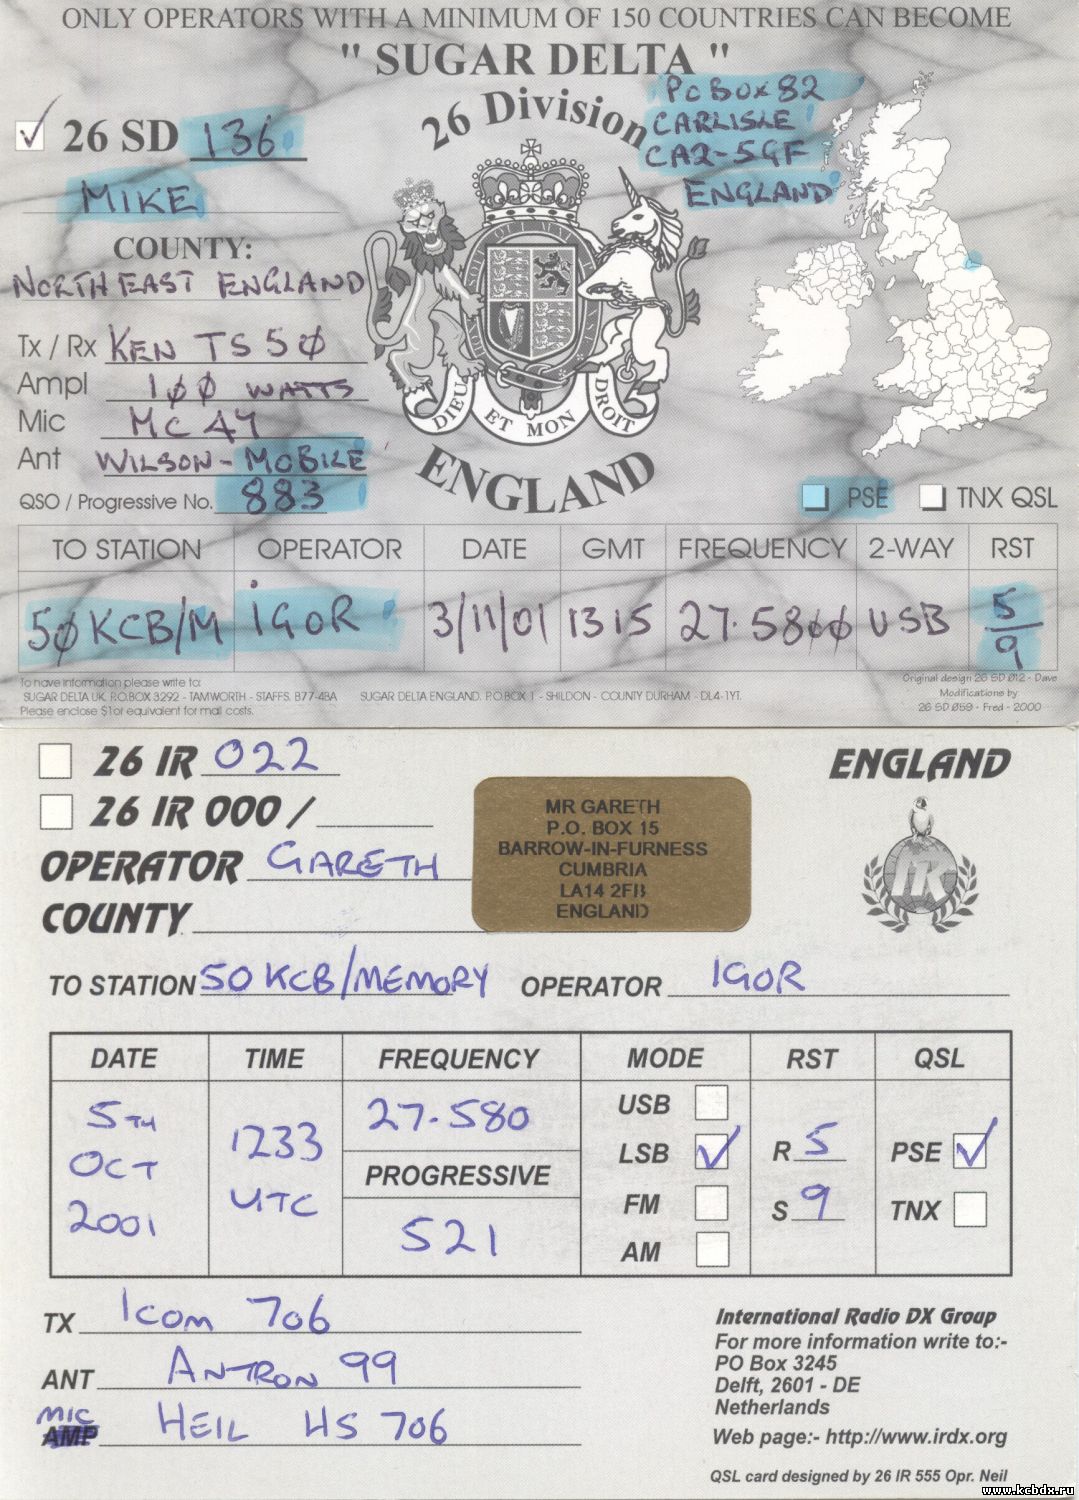 ONLY OPERATORS WITH A MINIMUM OF 150 COUNTRIES CAN BECOME
" SUGAR DELTA "
26 Division
PO BOX 82
CARLISLE
CA2-5GF
ENGLAND
26 SD 136
MIKE
COUNTY:
NORTH EAST ENGLAND
Tx / Rx KEN TS 50
Ampl 100 WATTS
Mic MC 47
Ant WILSON - MOBILE
QSO / Progressive No. 883
DIEU ET MON DROIT
ENGLAND
PSE TNX QSL
TO STATION OPERATOR DATE GMT FREQUENCY 2-WAY RST
50 KCB/M IGOR 3/11/01 1315 27.5800 USB 5/9
To have information please write to:
SUGAR DELTA UK. P.O.BOX 3292 - TAMWORTH - STAFFS. B77-4BA SUGAR DELTA ENGLAND. P.O.BOX 1 - SHILDON - COUNTY DURHAM - DL4-1YT.
Please enclose $1 or equivalent for mail costs.
Original design 26 SD 012 - Dave
Modifications by
26 SD 059 - Fred - 2000
26 IR 022
26 IR 000 /
OPERATOR GARETH
COUNTY
MR GARETH
P.O. BOX 15
BARROW-IN-FURNESS
CUMBRIA
LA14 2FB
ENGLAND
ENGLAND
IR
TO STATION 50 KCB/MEMORY OPERATOR IGOR
DATE TIME FREQUENCY MODE RST QSL
5TH
OCT
2001
1233
UTC
27.580
PROGRESSIVE
521
USB
LSB
FM
AM
R 5
S 9
PSE
TNX
TX ICOM 706
ANT ANTRON 99
MIC
AMP HEIL HS 706
International Radio DX Group
For more information write to:-
PO Box 3245
Delft, 2601 - DE
Netherlands
Web page:- http://www.irdx.org
QSL card designed by 26 IR 555 Opr. Neil
www.kcbdx.ru